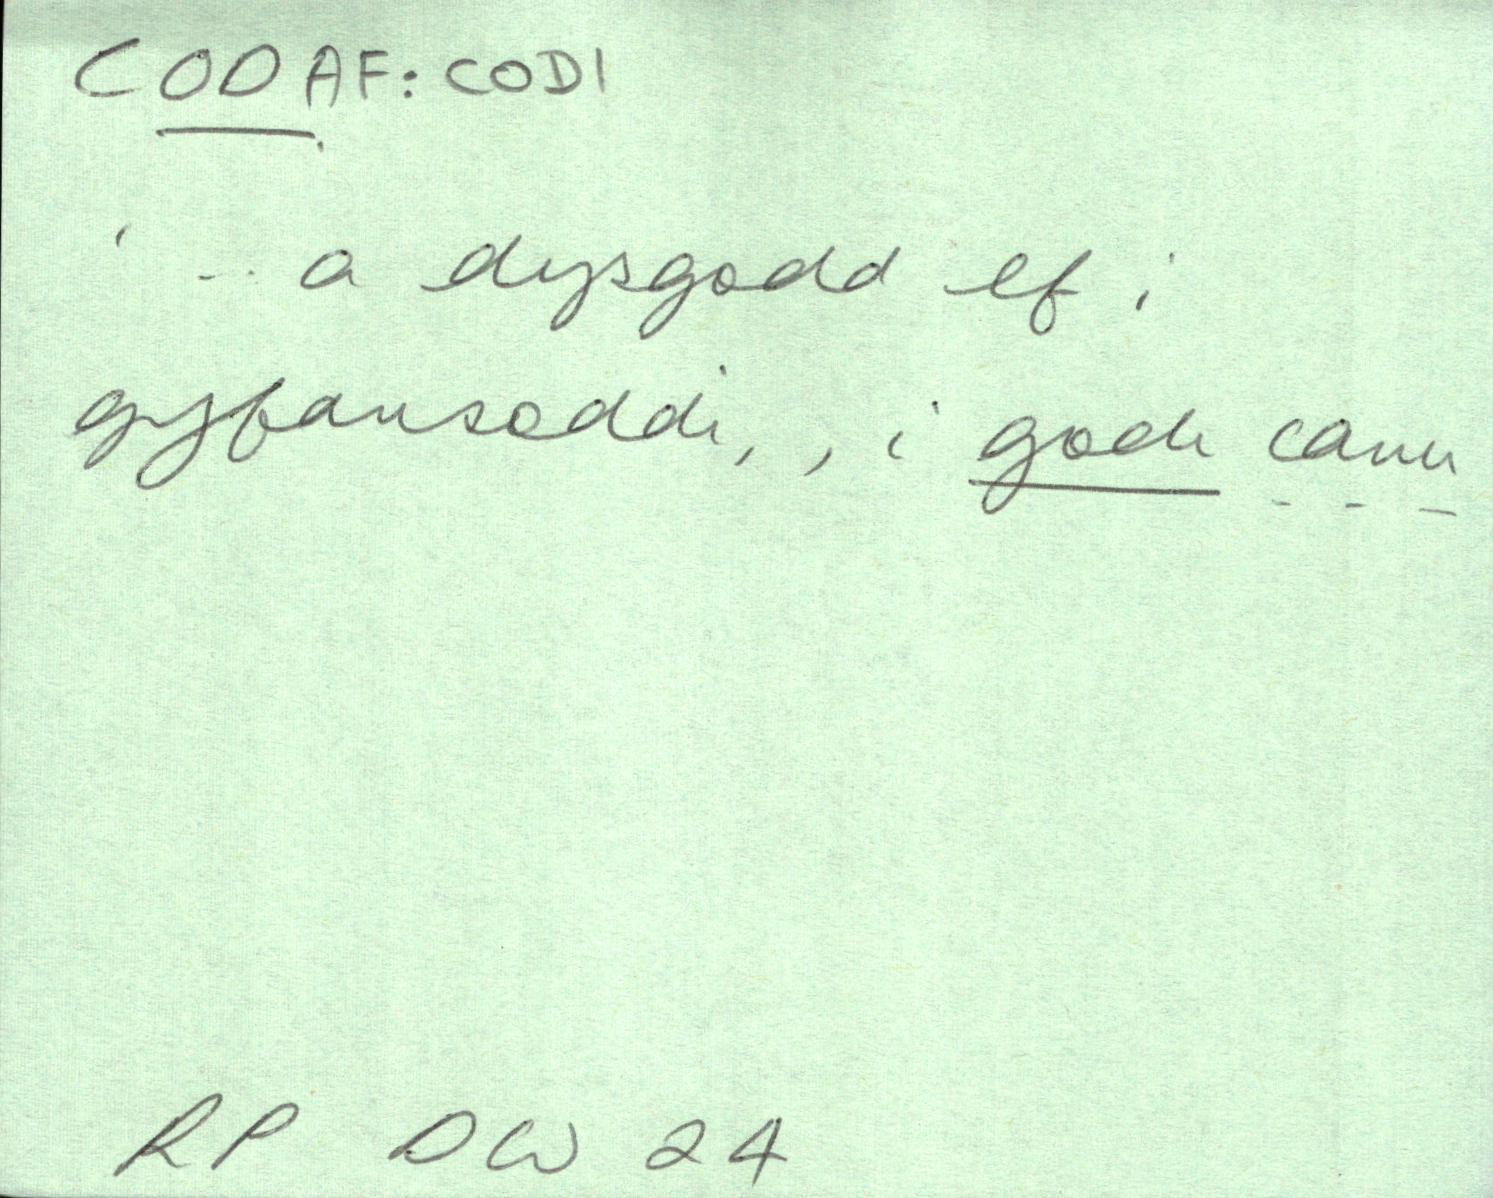 CODAF: CODI
' ... a dysgodd ef i
gyfansoddi, , i godi canu
RP DW 24